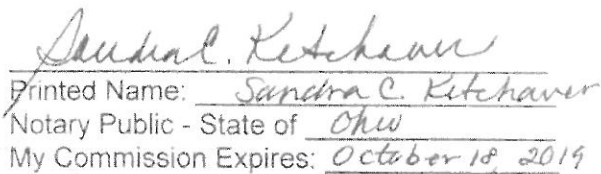 Sandra C. Ketchaver
Printed Name: Sandra C. Ketchaver
Notary Public - State of Ohio
My Commission Expires: October 18, 2019